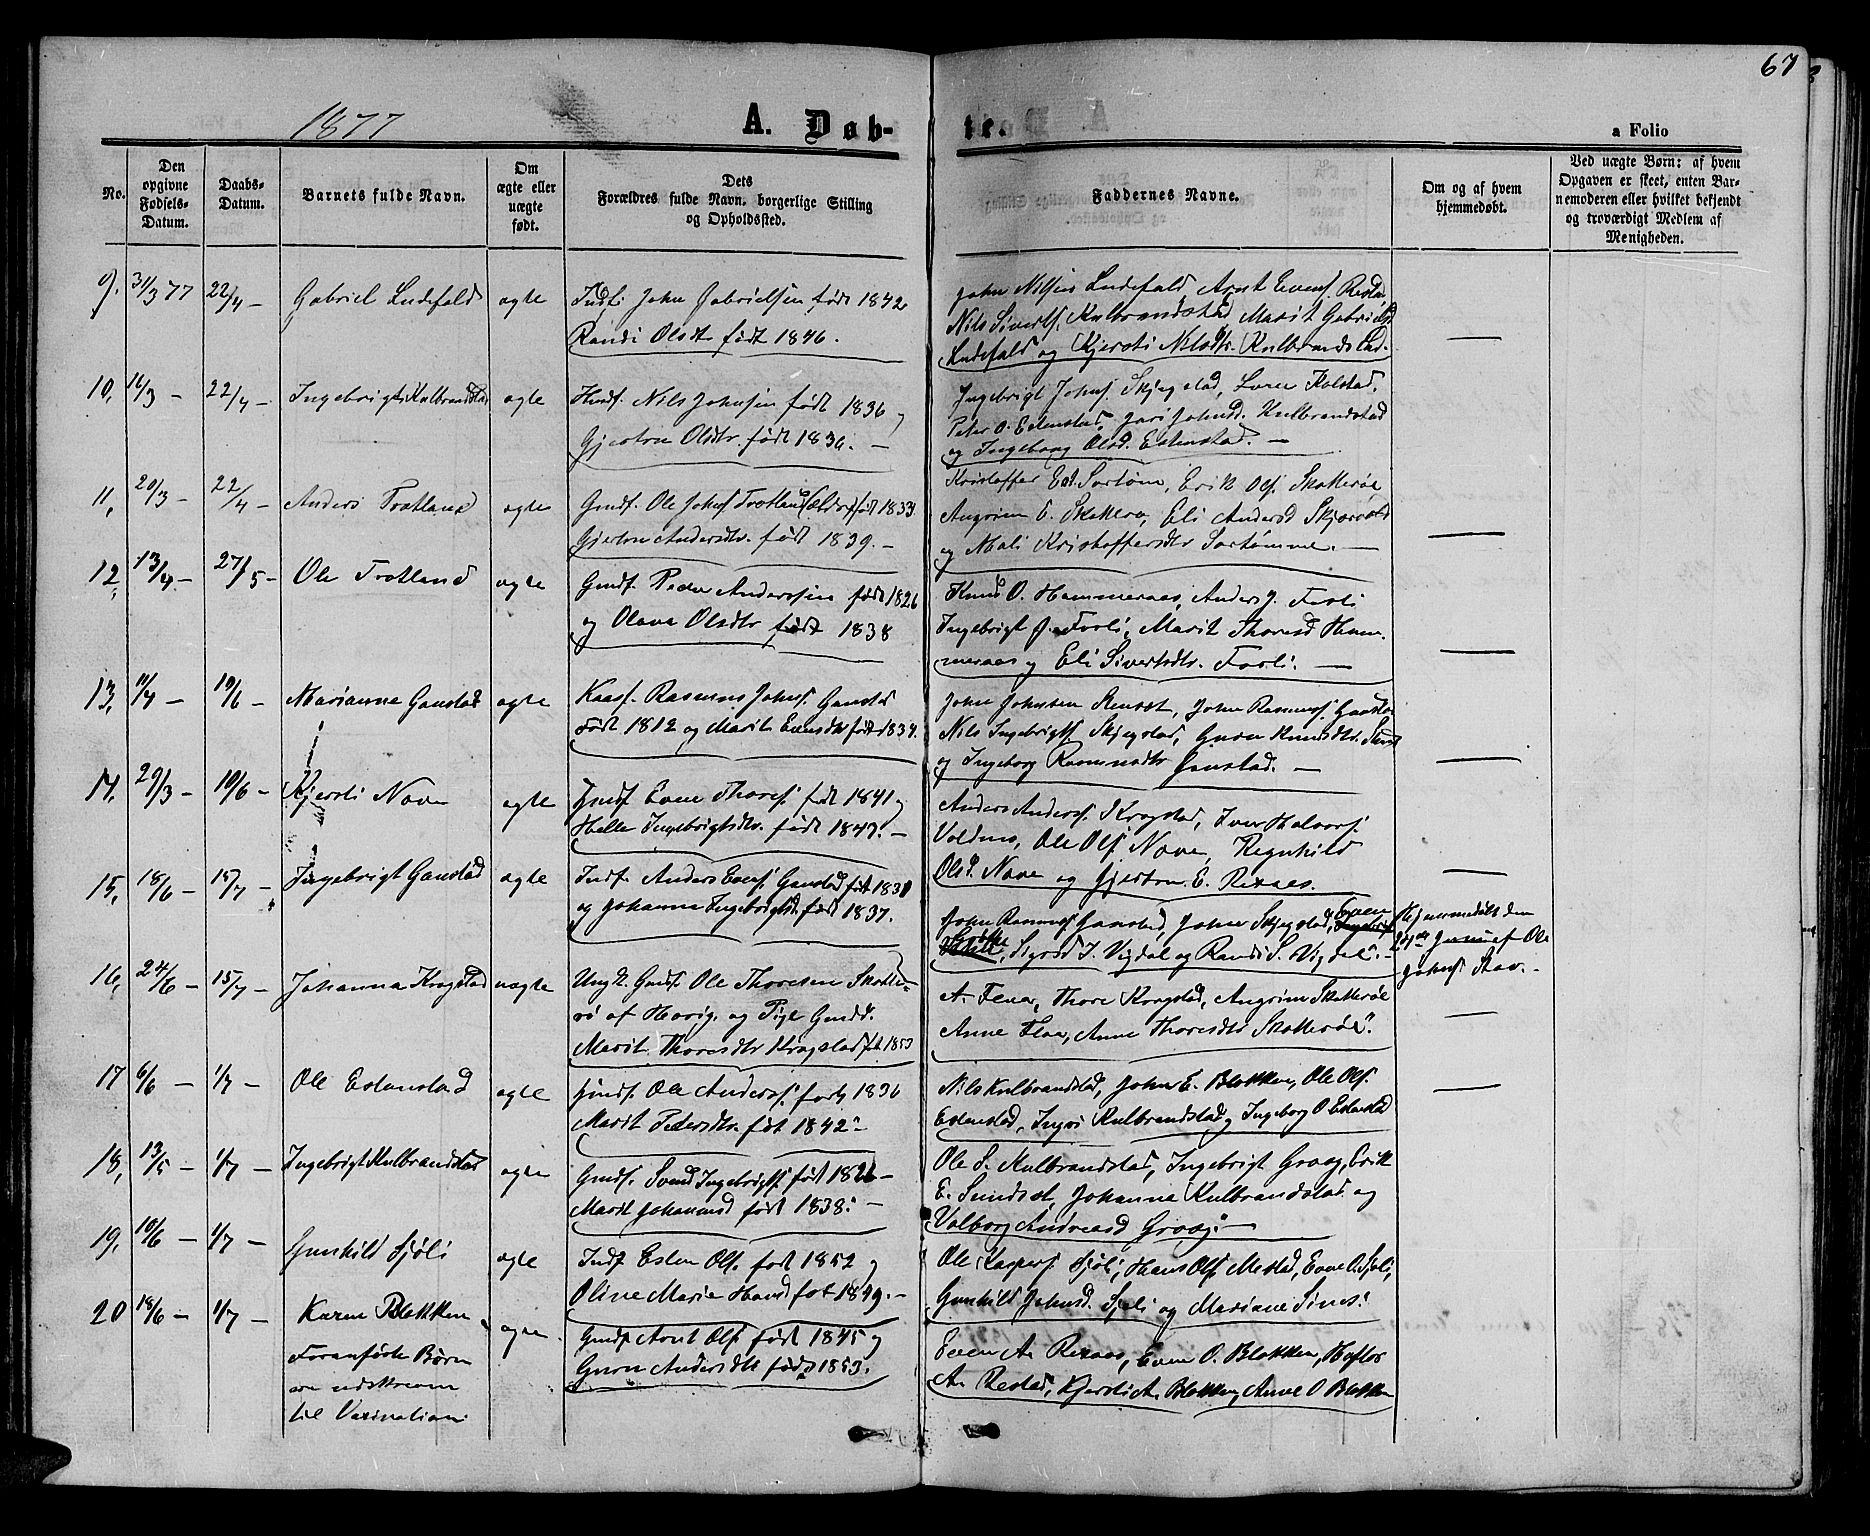 67
1877
A. Døbte.
a Folio
No.
Den opgivne Fødsels-Datum.
Daabs-Datum.
Barnets fulde Navn.
Om ægte eller uægte født.
Dets Forældres fulde Navn, borgerlige Stilling og Opholdssted.
Faddernes Navne.
Om og af hvem hjemmedøbt.
Ved uægte Børn: af hvem Opgaven er skeet, enten Barnemoderen eller hvilket bekjendt og troværdigt Medlem af Menigheden.
9. 31/3 77 22/4 — Gabriel Endefald ægte
Indf. John Gabrielsen født 1842
Randi Olsdt. født 1846.
John Nilsen Endefald Arnt Evens. Restad
Nils Siverts. Kulbrandstad Marit Gabrielsd.
Endefald og Kjersti Nilsdtr. Kulbrandstad. —
10, 16/3 — 22/4 — Ingebrigt Kulbrandstad ægte
Husf. Nils Johnsen født 1836 og
Gjertru Olsdtr. født 1836. —
Ingebrigt Johns. Skjegstad, Lorn Kolstad,
Peter O. Estenstad, Guri Johnsd. Kulbrandstad
og Ingeborg Olsd. Estenstad. —
11, 20/3 — 22/4 — Anders Trotland ægte
Gmdf. Ole Johns. Trotland (Ældre) født 1833
Gjertru Andersdtr. født 1839. —
Kristoffer Sortøm, Erik Ols. Skatterøe
Angrim E. Skattero, Eli Andersd Skjærvold
og Mali Kristoffersdtr Sortømme. —
12, 13/4 — 27/5 — Ole Trotland ægte
Gmdf. Peder Anderssen født 1826
og Olava Olsdtr født 1838
Knud O. Hammeraas, Anders J. Forli
Ingebrigt J. Forli, Marit Thoresd Ham-
meraas og Eli Sivertsdtr. Forli. —
13, 11/4 — 10/6 — Marianne Ganstad ægte
Kaaf. Rasmus Johns. Ganstad
født 1812 og Marit Evensdtr født 1834.
John Johnsen Renset, John Rasmuss. Ganstad
Nils Ingebrigts. Skjegstad, Guru Knudsdtr.
og Ingeborg Rasmusdtr Ganstad. —
14, 29/3 — 10/6 — Kjersti Nave ægte
Gmdf. Even Thores. født 1841 og
Helle Ingebrigtsdtr. født 1847. —
Anders Anders. Krogstad, Iver Halvors.
Voldmo, Ole Ols Nave, Regnhild
Olsd. Nave og Gjertru E. Rexaas. —
15, 18/6 — 15/7 — Ingebrigt Ganstad ægte
Indf. Anders Evens. Ganstad født 1831
og Johanna Ingebrigtsd. født 1837.
John Rasmus Ganstad, John Skjegstad, Even
Sigrid I. Vigdal og Randi S. Vigdal. —
Hjemmedøbt den
24de Juni af Ole
Johns. Stav. —
16, 24/6 — 15/7 — Johanna Krogstad uægte
Ungk. Gmds. Ole Thoresen Skatte-
rø af Horig. og Pige Gmdd.
Marit Thoresdtr Krogstad føt 1853
A. Flaa, Thore Krogstad, Angrim Skatterøe
Anne Flaa, Anne Thoresdtr Skatterøe. —
17 6/6 — 1/7 — Ole Estenstad ægte
Gmdf. Ole Anders. født 1836
Marit Pedersdtr. føt 1842. —
Nils Kulbrandstad, John E. Blekken, Ole Ols.
Estenstad, Ingri Kulbrandstad og Ingeborg O Estenstad
18, 13/5 — 1/7 — Ingebrigt Kulbrandstad ægte
Gmdf. Svend Ingebrigts. født 1826 —
Marit Johannesd født 1838. —
Ole S. Kulbrandstad, Ingebrigt Graag, Erik
E. Sundset, Johanna Kulbrandstad og
Valborg Andreasd Graag. —
19, 10/6 — 1/7 — Gunhild Sjøli ægte
Indf. Esten Ols. født 1852 og
Oline Marie Hansd føt 1849. —
Ole Kaspers. Sjøli, Hans Ols. Mostad, Even O. Sjøli,
Gunhild Johnsd. Sjøli og Mariane Simes.
20 18/6 — 1/7 — Karen Blekken ægte.
Gmdf. Arnt Ols. født 1845 og
Guru Andersdtr født 1853.
Even A. Rexaas, Even O. Blekken, Haftor
A. Restad, Kjersti A. Blekken, Anne O Blekken
Foranførte Børn
ere udskreven
til Vaxination.